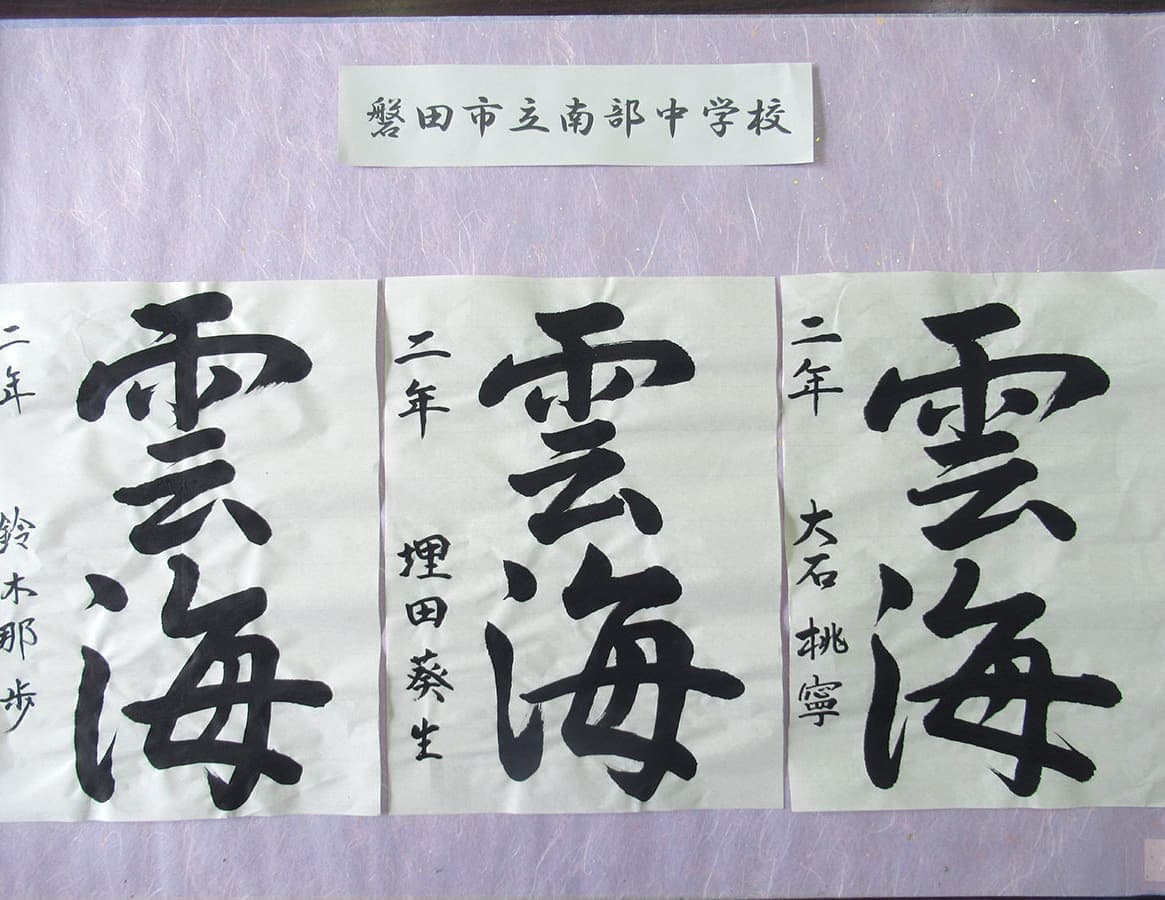 磐田市立南部中学校
雲海
二年 大石桃寧
雲海
二年 埋田葵生
雲海
二年 鈴木那歩